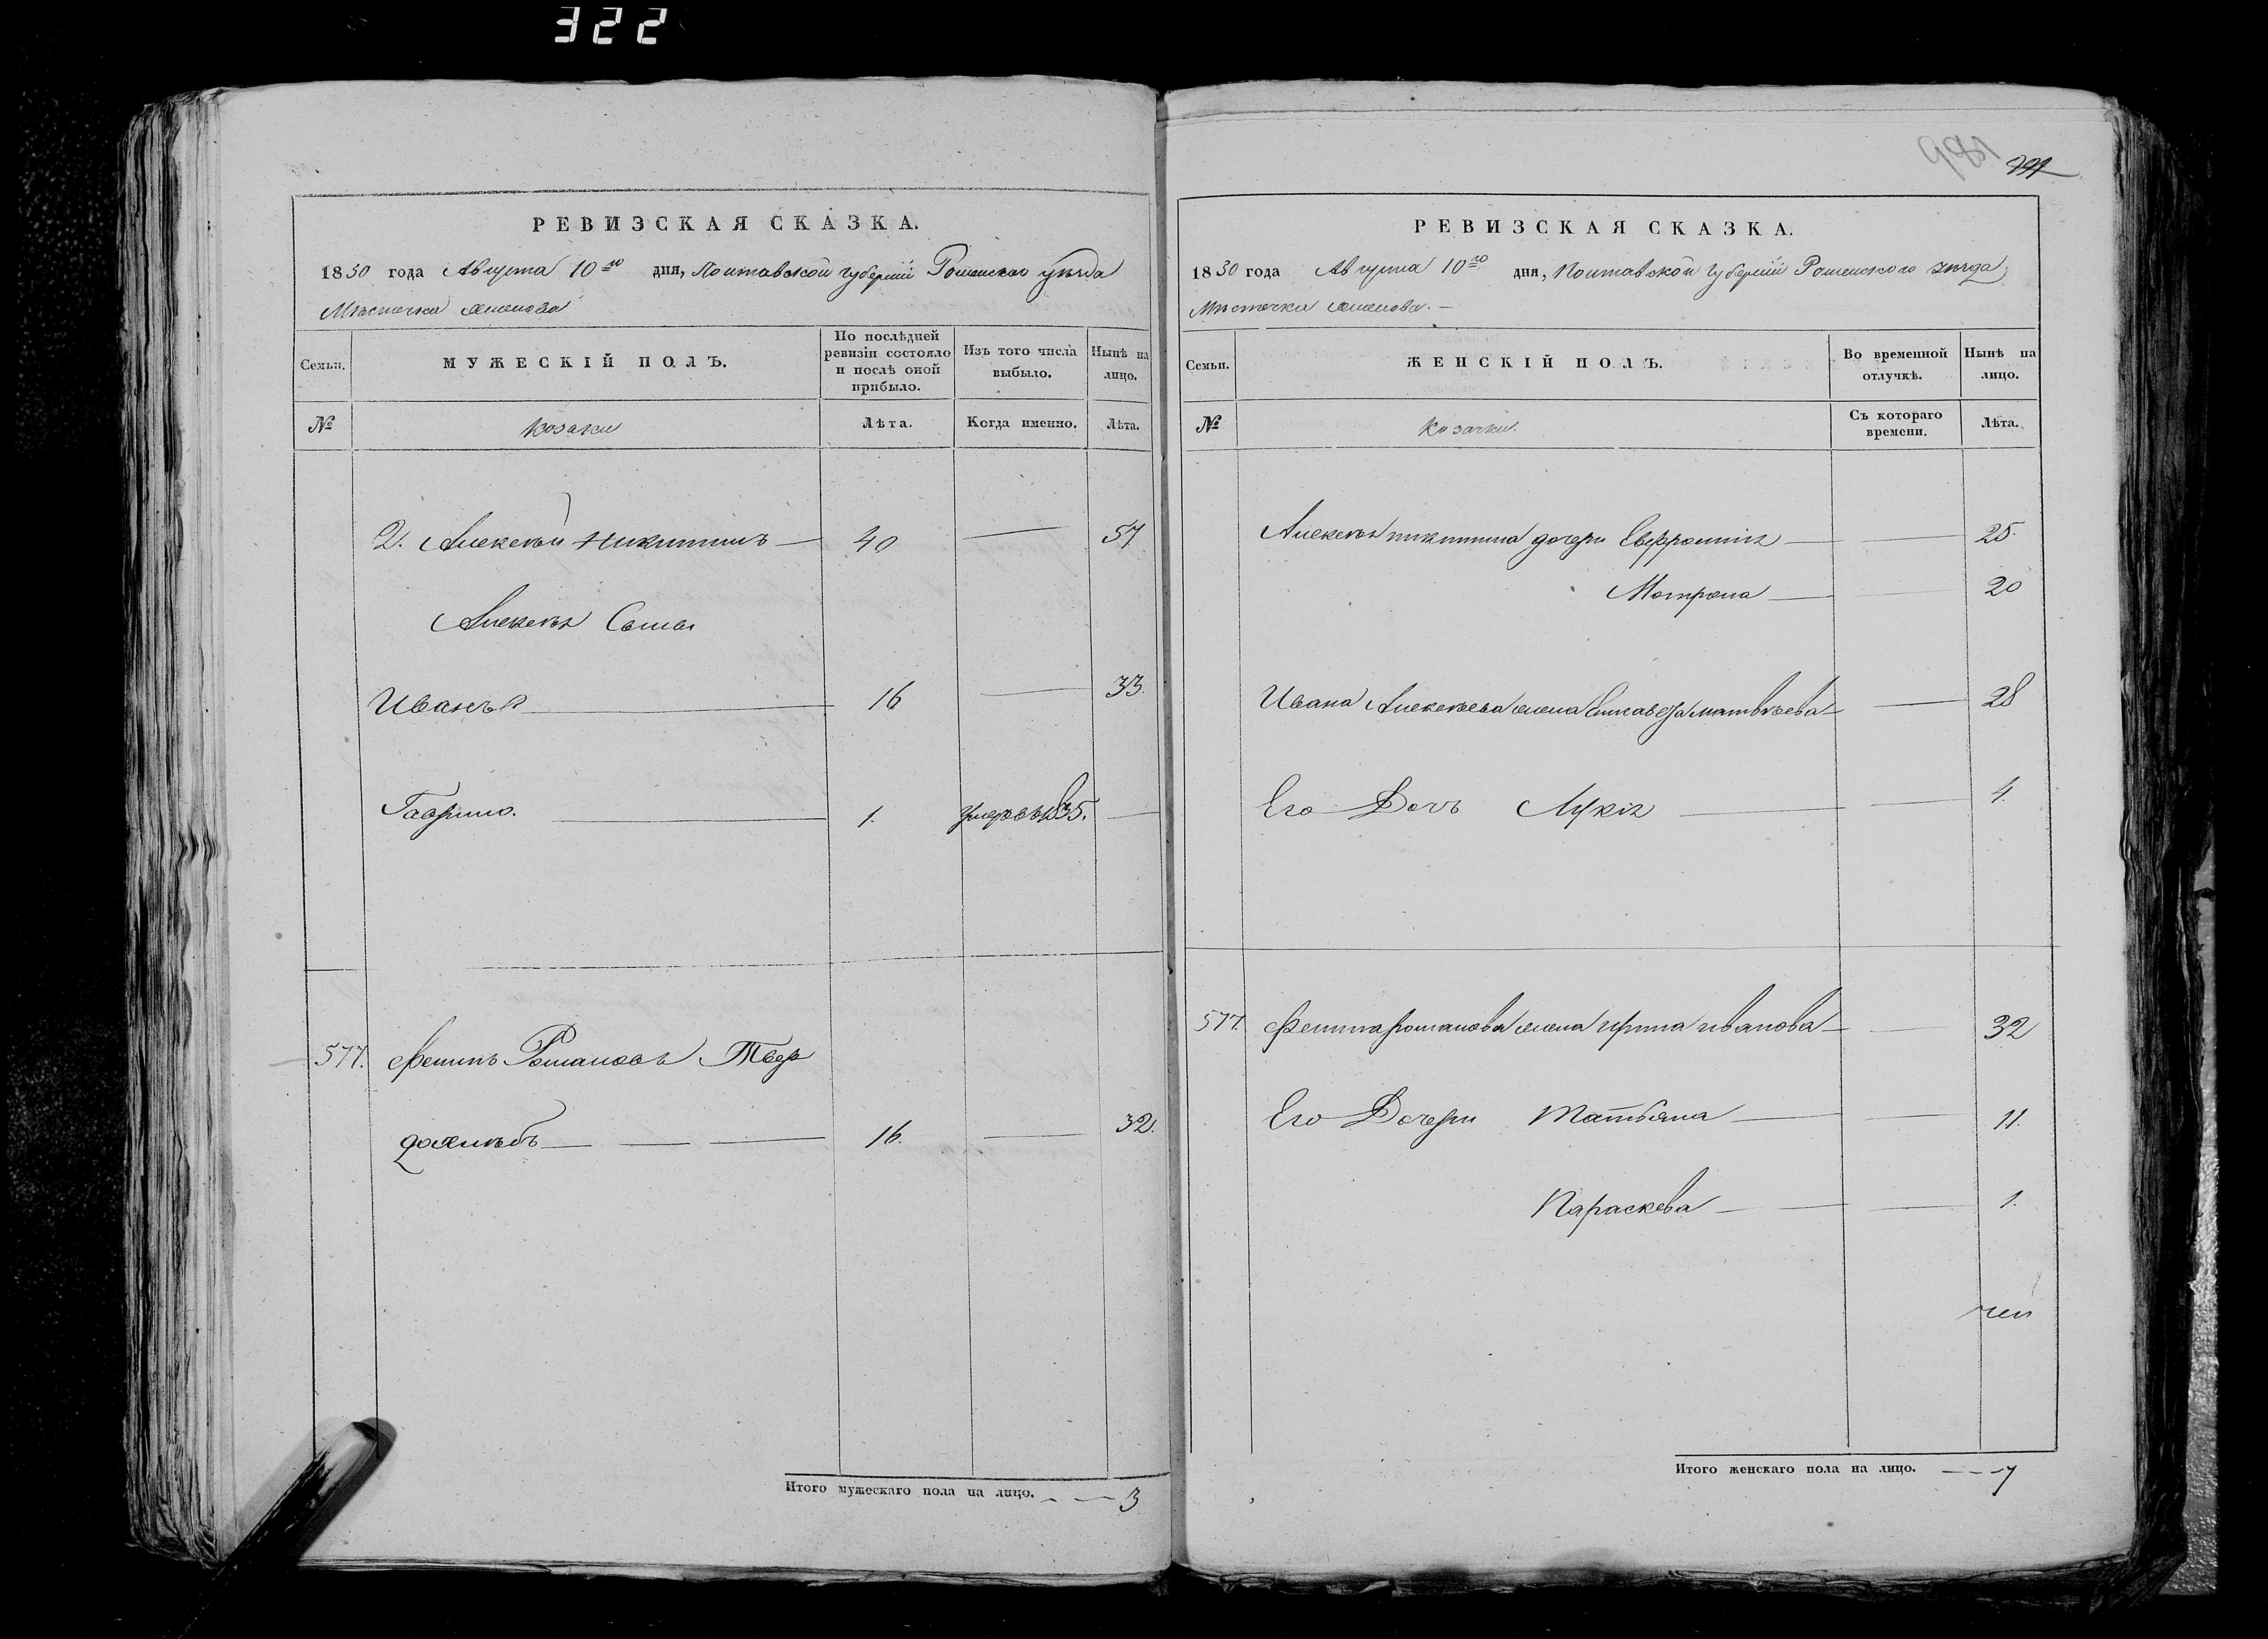 322
РЕВИЗСКАЯ СКАЗКА.
1830 года Августа 10го дня, Полтавской губерніи Роменскаго уѣзда
Мѣстечка
Семьи.
МУЖЕСКІЙ ПОЛЪ.
По послѣдней ревизіи состояло и послѣ оной прибыло.
Изъ того числа выбыло.
Нынѣ на лицо.
№
козаки
Лѣта.
Когда именно.
Лѣта.
2. Алексѣй Никитинъ 40 57
Алексѣя Сыны
Иванъ 16 33.
Гаврило. 1. умеръ въ 1835.
577. Филипъ Романовъ Твер
дохлѣбъ 16. 32
Итого мужескаго пола на лицо. 3
981
РЕВИЗСКАЯ СКАЗКА.
1830 года Августа 10го дня, Полтавской губерніи Роменского уѣзда
Мѣстечка
Семьи.
ЖЕНСКІЙ ПОЛЪ.
Во временной отлучкѣ.
Нынѣ на лицо.
№
козачки.
Съ котораго времени.
Лѣта.
Алексѣя никитина дочери Евфросинія 25.
Мотрона 20
Ивана Алексѣева жена Елисавета матвѣева 28
Его Дочъ Лукія 4.
577. Филипа романова жена ирина иванова 32
Его Дочери Татьяна 11.
Параскева 1.
Итого женскаго пола на лицо. 7